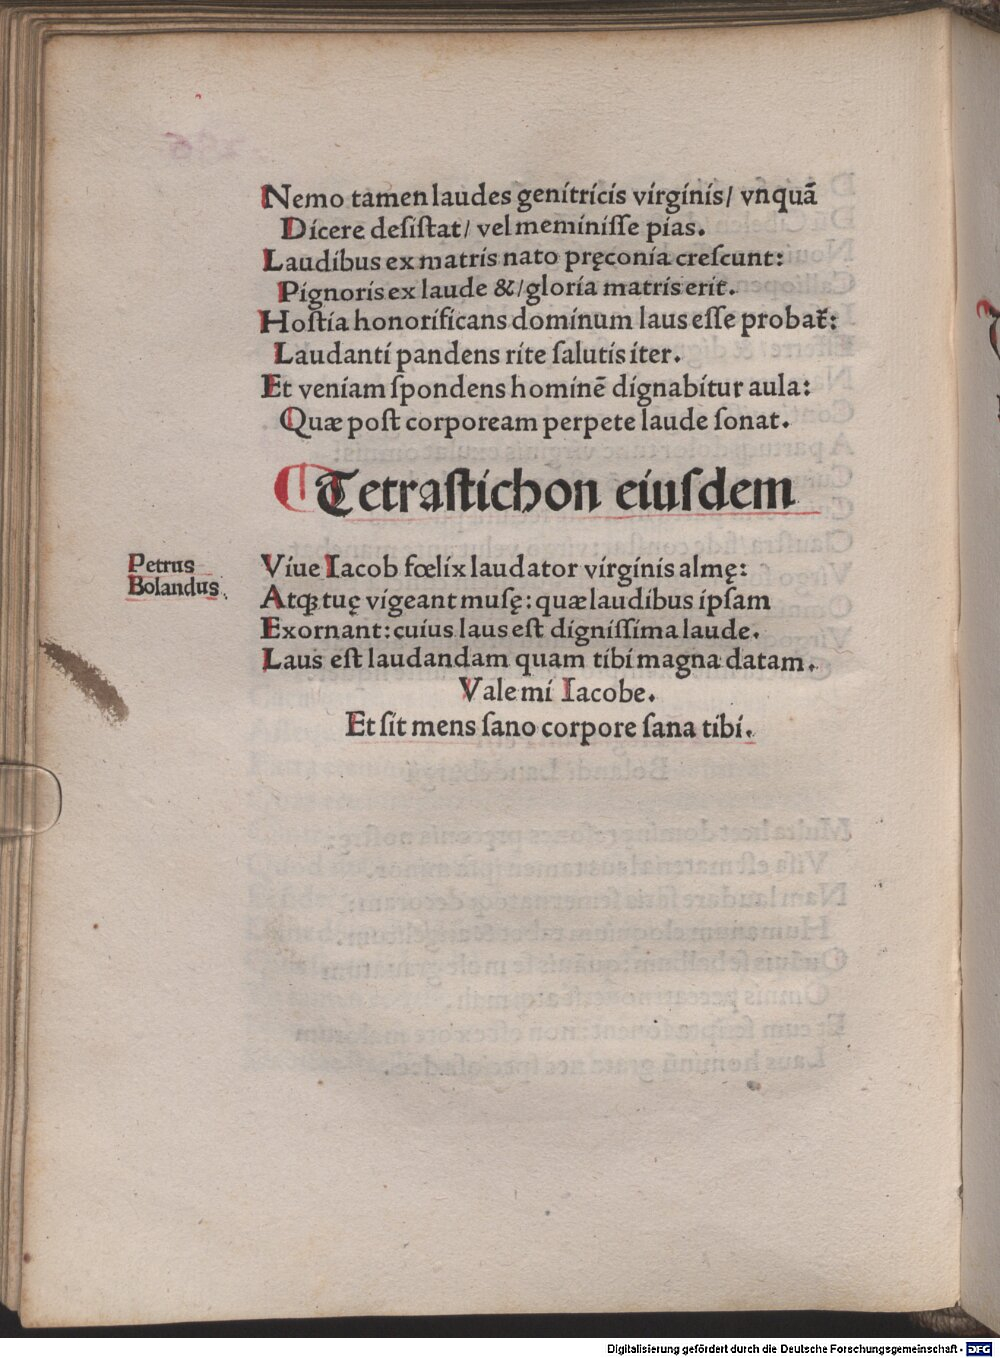 Nemo tamen laudes genitricis virginis/ vnquā
Dicere desiſtat/ vel meminiſſe pias.
Laudibus ex matris nato pręconia creſcunt:
Pignoris ex laude &/ gloria matris erit.
Hoſtia honorificans dominum laus eſſe probat᷑:
Laudanti pandens rite ſalutis iter.
Et veniam ſpondens hominē dignabitur aula:
Quæ poſt corpoream perpete laude ſonat.
Tetraſtichon eiuſdem
Petrus
Bolandus.
Viue Iacob fœlix laudator virginis almę:
Atqꝫ tuę vigeant muſę: quæ laudibus ipſam
Exornant: cuius laus eſt digniſſima laude.
Laus eſt laudandam quam tibi magna datam.
Vale mi Iacobe.
Et ſit mens ſano corpore ſana tibi.
Digitalisierung gefördert durch die Deutsche Forschungsgemeinschaft - DFG